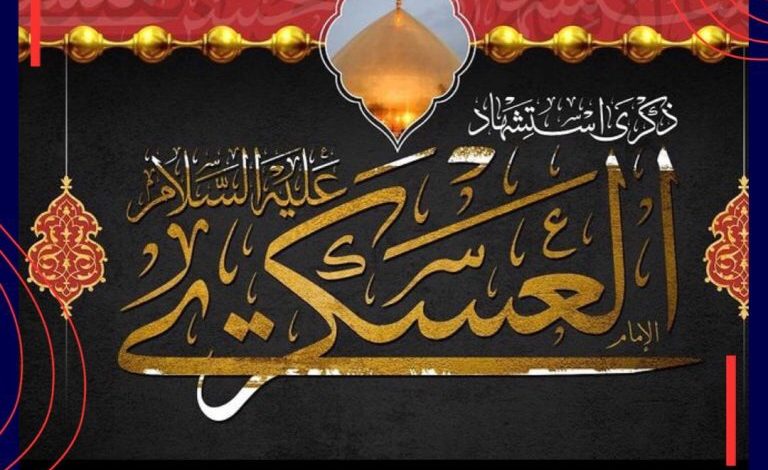 ذكرى استشهاد
الإمام
العسكري
عليه السلام